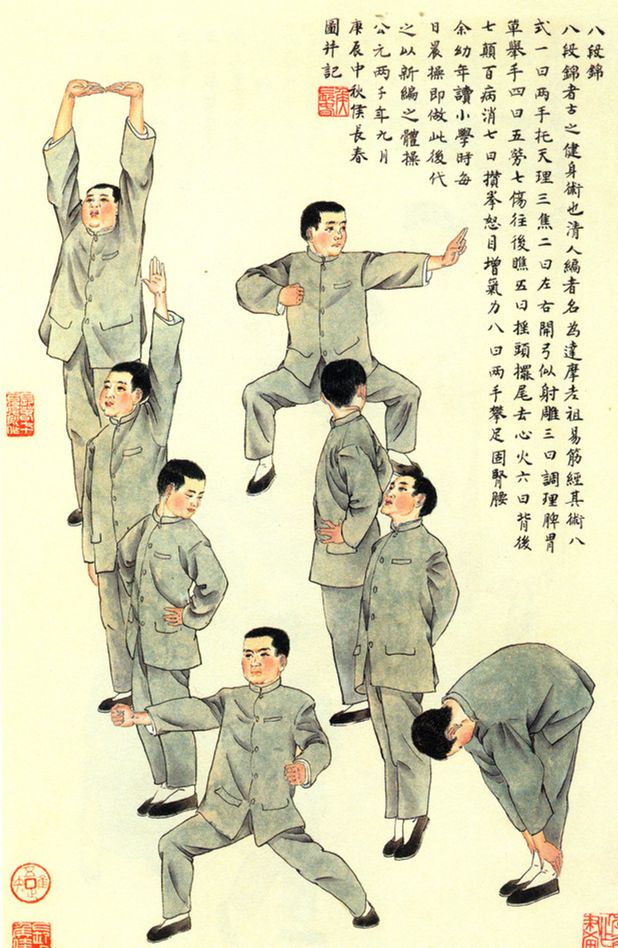 八段錦
八段錦者古之健身術也清人編者名為達摩老祖易筋經其術八
式一曰兩手托天理三焦二曰左右開弓似射雕三曰調理脾胃
單舉手四曰五勞七傷往後瞧五曰搖頭擺尾去心火六曰背後
七顛百病消七曰攢拳怒目增氣力八曰兩手攀足固腎腰
余幼年讀小學時每
日晨操即做此後代
之以新編之體操
公元两千年九月
庚辰中秋侯長春
圖并記